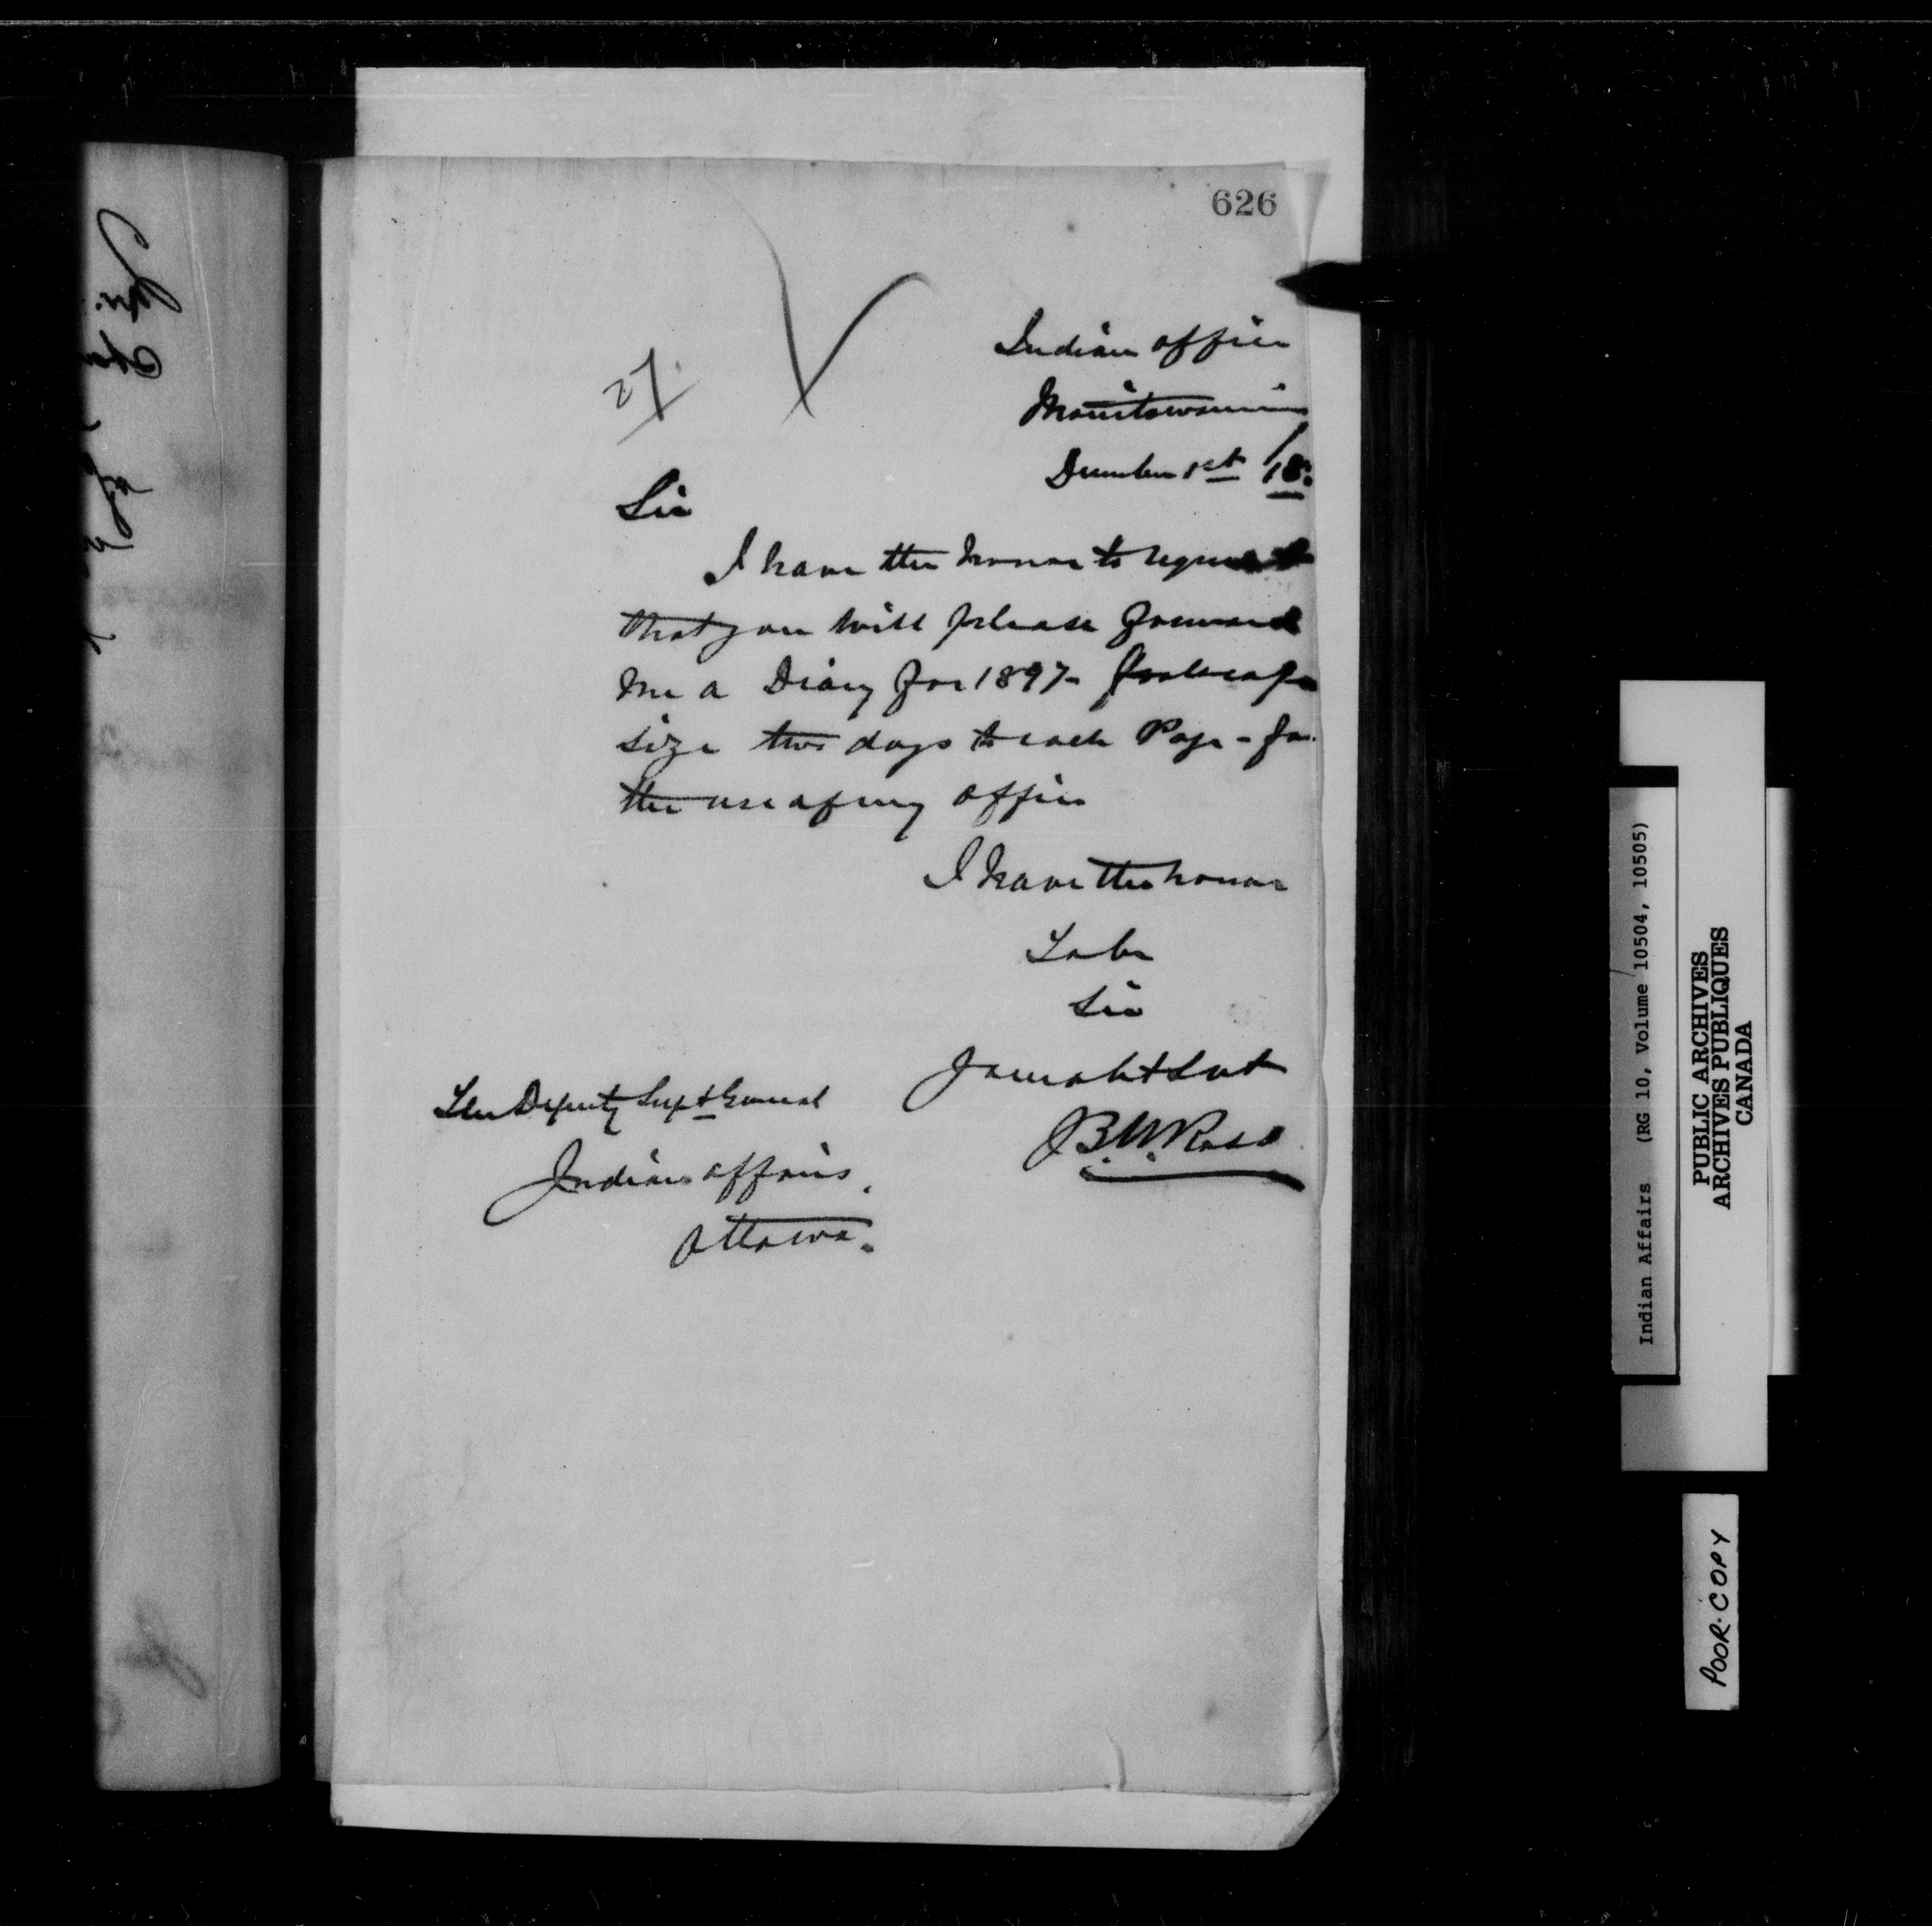 626
27.
Indian office
Manitowaning
December 1st /18
Sir
I have the honor to request
that you will please forward
me a Diary for 1897 - foolscap
size two days to each Page - for
the use of my office
I have the honor
To be
Sir
Your obt Svt
B.W. Ross
The Deputy Supt General
Indian affairs,
Ottawa.
Indian Affairs (RG 10, Volume 10504, 10505)
PUBLIC ARCHIVES
ARCHIVES PUBLIQUES
CANADA
POOR COPY